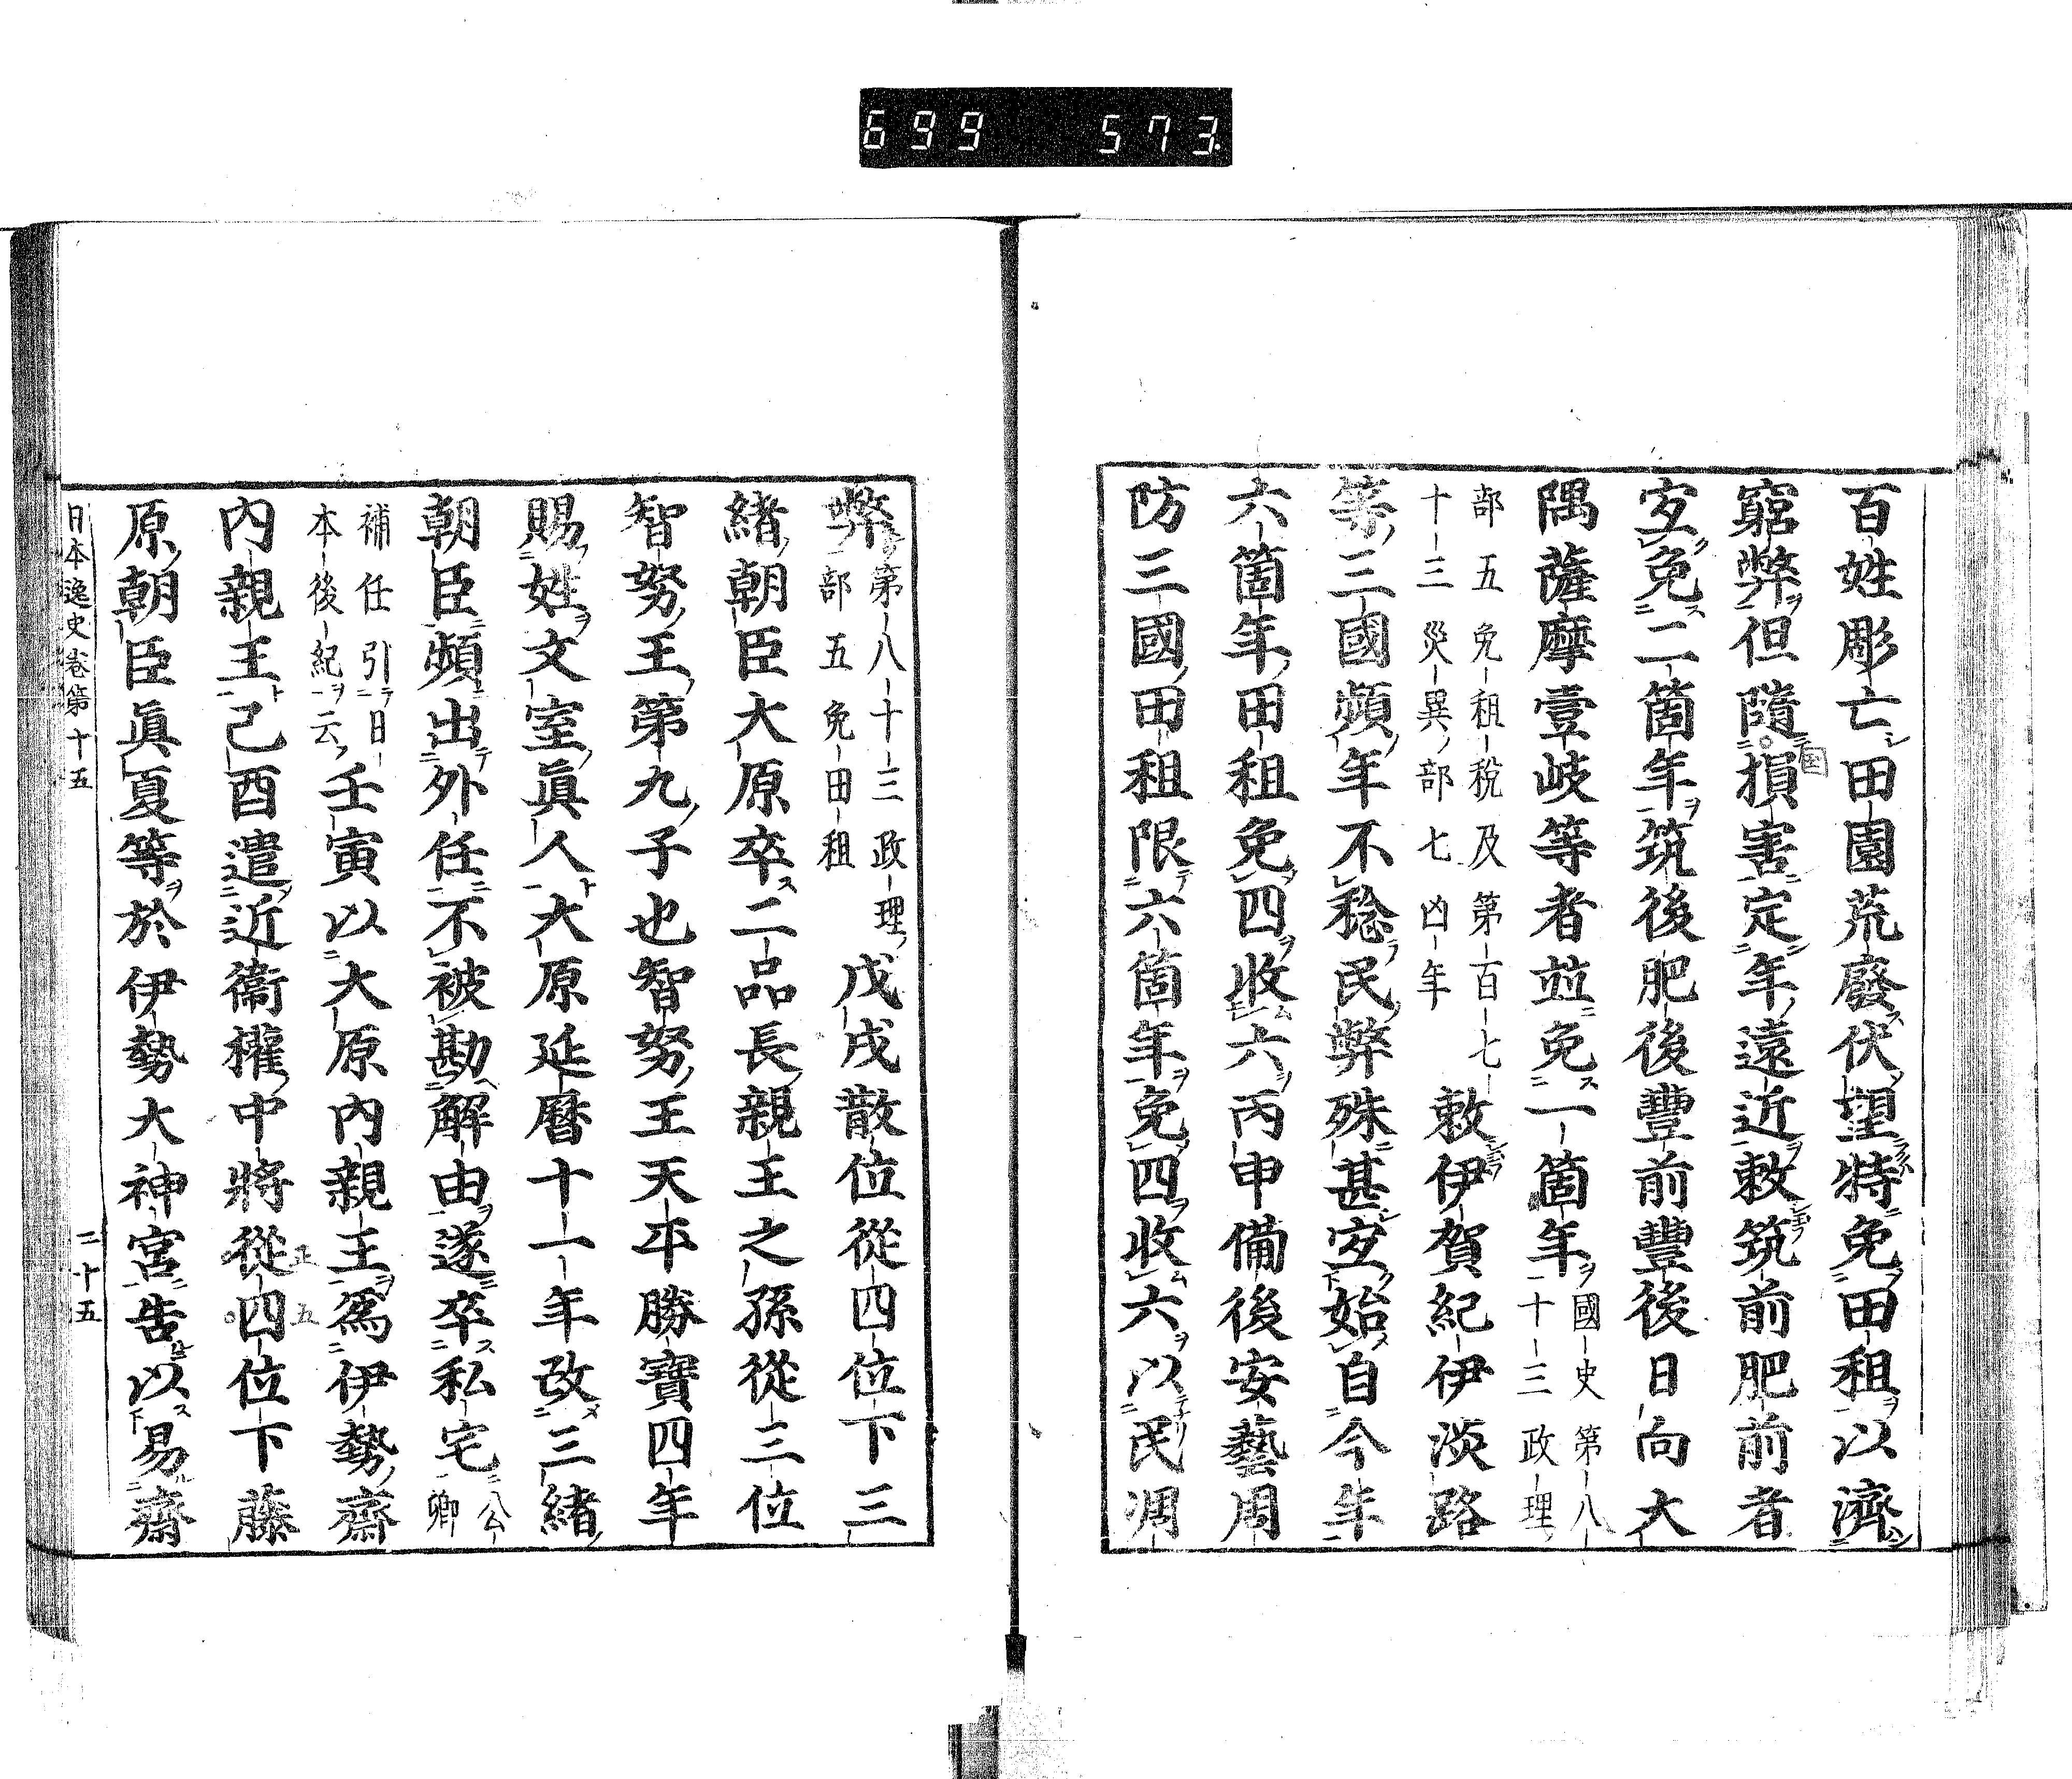 699 573
百姓彫亡田園荒廢伏望特免田租以濟
窮弊但隨損害定年遠近敕筑前肥前者
国
宜免二箇年筑後肥後豐前豐後日向大
隅薩摩壹岐等者並免一箇年國史第八十三政理
部五免租税及第百七十三災異部七凶年敕伊賀紀伊淡路
等三國頻年不稔民弊殊甚宜始自今年
六箇年田租免四收六丙申備後安藝周
防三國田租限六箇年免四收六以民凋
弊第八十三政理部五免田租戊戌散位從四位下三
緒朝臣大原卒二品長親王之孫從三位
智努王第九子也智努王天平勝寶四年
賜姓文室眞人大原延曆十一年改三緒
朝臣頻出外任不被勘解由遂卒私宅公卿
補任引日本後紀云壬寅以大原內親王爲伊勢齋
內親王己酉遣近衞權中將從四位下藤
正五
原朝臣眞夏等於伊勢大神宮告以易齋
日本逸史卷第十五 二十五